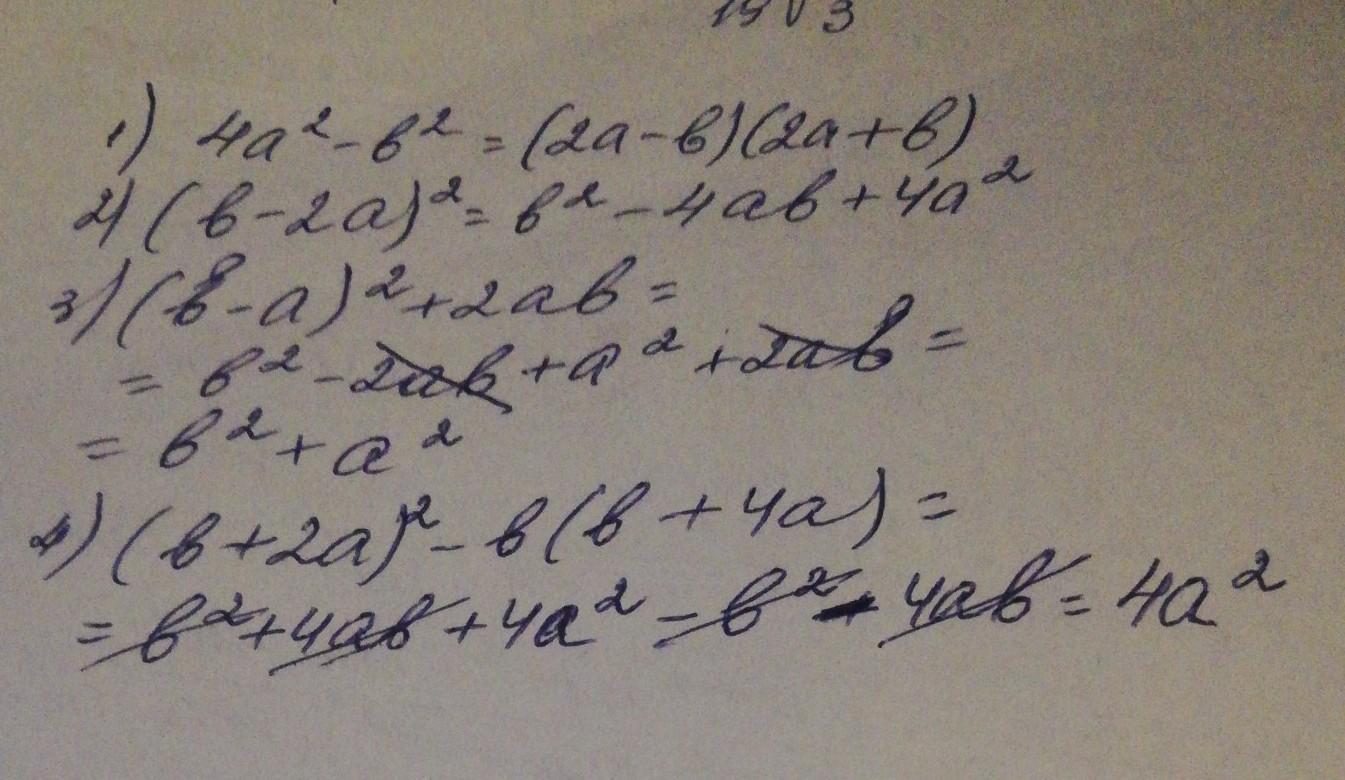 1) 4a² - b² = (2a - b)(2a + b)
2) (b - 2a)² = b² - 4ab + 4a²
3) (b - a)² + 2ab =
= b² - 2ab + a² + 2ab =
= b² + a²
4) (b + 2a)² - b(b + 4a) =
= b² + 4ab + 4a² - b² - 4ab = 4a²